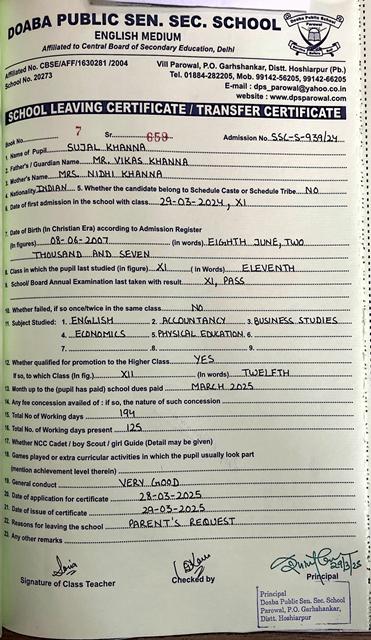 DOABA PUBLIC SEN. SEC. SCHOOL
ENGLISH MEDIUM
Affiliated to Central Board of Secondary Education, Delhi
Affiliated No. CBSE/AFF/1630281 /2004
School No. 20273
Vill Parowal, P.O. Garhshankar, Distt. Hoshiarpur (Pb.)
Tel. 01884-282205, Mob. 99142-56205, 99142-66205
E-mail : dps_parowal@yahoo.co.in
website : www.dpsparowal.com
SCHOOL LEAVING CERTIFICATE / TRANSFER CERTIFICATE
Book No. 7 Sr. 659 Admission No. SSC-S-939/24
1. Name of Pupil SUJAL KHANNA
2. Father's / Guardian Name MR. VIKAS KHANNA
3. Mother's Name MRS. NIDHI KHANNA
4. Nationality INDIAN 5. Whether the candidate belong to Schedule Caste or Schedule Tribe NO
6. Date of first admission in the school with class 29-03-2024, XI
7. Date of Birth (In Christian Era) according to Admission Register
(In figures) 08-06-2007 (in words) EIGHTH JUNE, TWO
THOUSAND AND SEVEN
8. Class in which the pupil last studied (in figure) XI (in Words) ELEVENTH
9. School/ Board Annual Examination last taken with result XI, PASS
10. Whether failed, if so once/twice in the same class NO
11. Subject Studied: 1. ENGLISH 2. ACCOUNTANCY 3. BUSINESS STUDIES
4. ECONOMICS 5. PHYSICAL EDUCATION 6.
7. 8. 9.
12. Whether qualified for promotion to the Higher Class YES
If so, to which Class (In fig.) XII (In Words) TWELFTH
13. Month up to the (pupil has paid) school dues paid MARCH 2025
14. Any fee concession availed of : if so, the nature of such concession
15. Total No. of Working days 194
16. Total No. of Working days present 125
17. Whether NCC Cadet / boy Scout / girl Guide (Detail may be given)
18. Games played or extra curricular activities in which the pupil usually took part
(mention achievement level therein)
19. General conduct VERY GOOD
20. Date of application for certificate 28-03-2025
21. Date of issue of certificate 29-03-2025
22. Reasons for leaving the school PARENT'S REQUEST
23. Any other remarks
29/3/25
Signature of Class Teacher Checked by Principal
Principal
Doaba Public Sen. Sec. School
Parowal, P.O. Garhshankar,
Distt. Hoshiarpur